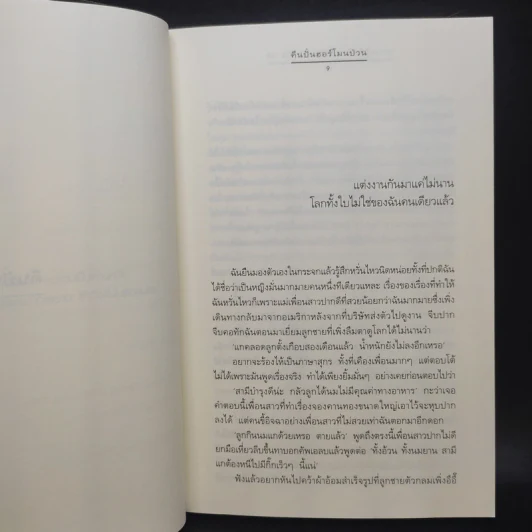 คืนปั่นฮอร์โมนป่วน
แต่งงานกันมาแค่ไม่นาน
โลกทั้งใบไม่ใช่ของฉันคนเดียวแล้ว
ฉันยืนมองตัวเองในกระจกแล้วรู้สึกหวั่นไหวนิดหน่อยทั้งที่ปกติฉัน
ได้ชื่อว่าเป็นหญิงมั่นมากมายคนหนึ่งทีเดียวแหละ เรื่องของเรื่องที่ทำให้
ฉันหวั่นไหวก็เพราะแม่เพื่อนสาวปากดีที่สวยน้อยกว่าฉันมากมายซึ่งเพิ่ง
เดินทางกลับมาจากอเมริกาหลังจากที่บริษัทส่งตัวไปดูงาน จีบปาก
จีบคอทักฉันตอนมาเยี่ยมลูกชายที่เพิ่งลืมตาดูโลกได้ไม่นานว่า
'แกคลอดลูกตั้งเกือบสองเดือนแล้ว น้ำหนักยังไม่ลงอีกเหรอ'
อยากจะร้องให้เป็นภาษาสุกร ทั้งที่เคืองเพื่อนมากๆ แต่ตอบโต้
ไม่ได้เพราะมันพูดเรื่องจริง ทำได้เพียงยิ้มมั่นๆ อย่างเคยก่อนตอบไปว่า
'สามีบำรุงดีน่ะ กลัวลูกได้นมไม่มีคุณค่าทางอาหาร' กะว่าเจอ
คำตอบนี้เพื่อนสาวที่ทำเรื่องจองคานทองขนาดใหญ่เอาไว้จะหุบปาก
ลงได้ แต่คนขี้อิจฉาอย่างเพื่อนสาวที่ไม่สวยเท่าฉันตอกมาอีกดอก
'ลูกกินนมแกด้วยเหรอ ตายแล้ว' พูดถึงตรงนี้เพื่อนสาวปากไม่ดี
ยกมือเหี่ยวลีบขึ้นทาบอกคัพเอลบแล้วพูดต่อ 'ทั้งอ้วน ทั้งนมยาน สามี
แกต้องหนีไปมีกิ๊กเร็วๆ นี้แน่'
ฟังแล้วอยากหันไปคว้าผ้าอ้อมสำเร็จรูปที่ลูกชายตัวกลมเพิ่งอึอึ๊